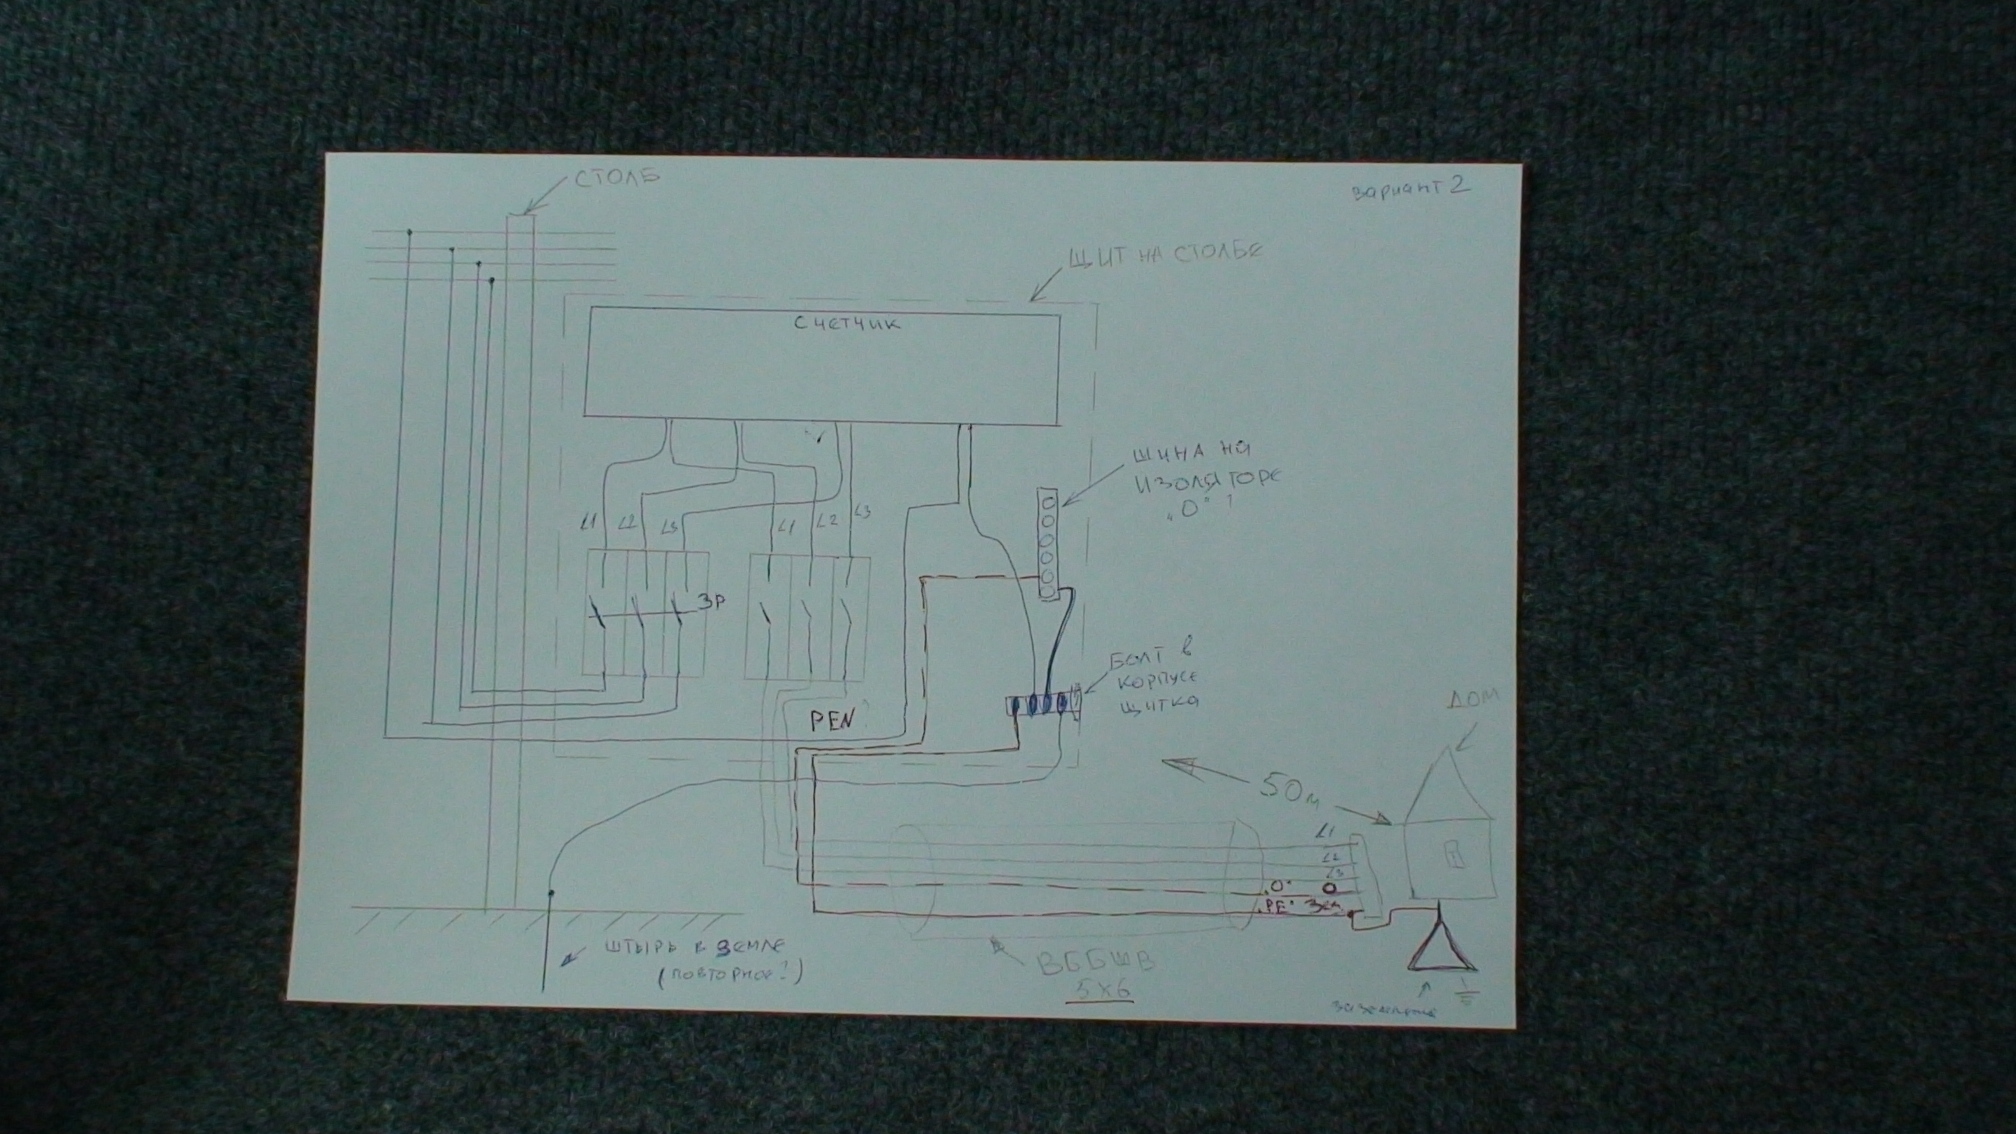 СТОЛБ
вариант 2
ЩИТ НА СТОЛБЕ
СЧЕТЧИК
ШИНА НА
ИЗОЛЯТОРЕ
"О" !
L1 L2 L3 L1 L2 L3
3P
БОЛТ В
КОРПУСЕ
ЩИТКА
PEN
ДОМ
50м
L1
L2
L3
"О" О
"PE" Зем
ШТЫРЬ В ЗЕМЛЕ
(ПОВТОРНОЕ?)
ВББШВ
5х6
заземление